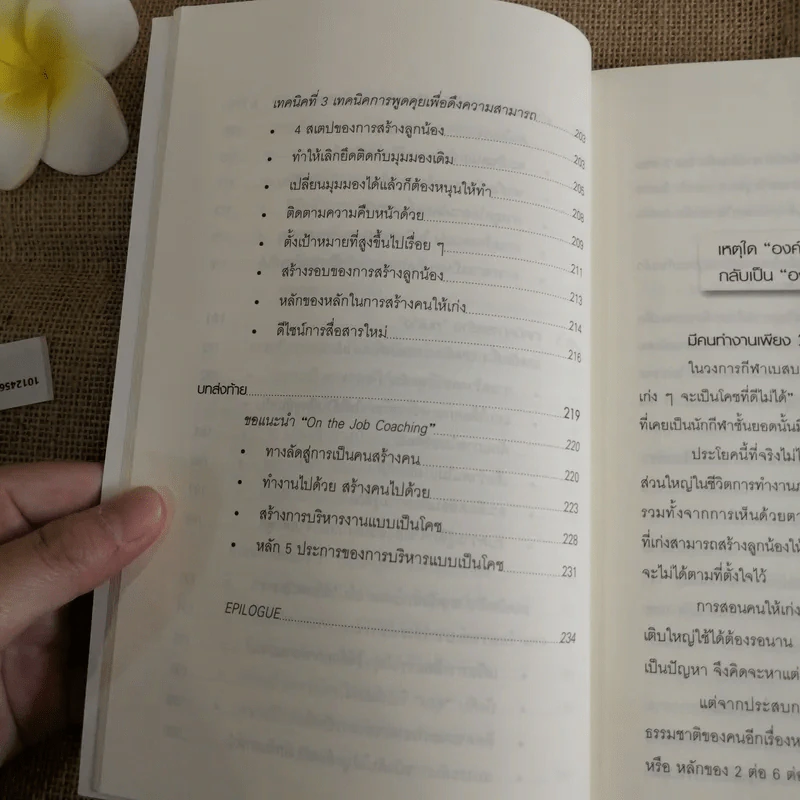 เทคนิคที่ 3 เทคนิคการพูดคุยเพื่อดึงความสามารถ 203
• 4 สเตปของการสร้างลูกน้อง 203
• ทำให้เลิกยึดติดกับมุมมองเดิม 205
• เปลี่ยนมุมมองได้แล้วก็ต้องหนุนให้ทำ 208
• ติดตามความคืบหน้าด้วย 209
• ตั้งเป้าหมายที่สูงขึ้นไปเรื่อย ๆ 211
• สร้างรอบของการสร้างลูกน้อง 213
• หลักของหลักในการสร้างคนให้เก่ง 214
• ดีไซน์การสื่อสารใหม่ 216
บทส่งท้าย 219
ขอแนะนำ "On the Job Coaching" 220
• ทางลัดสู่การเป็นคนสร้างคน 220
• ทำงานไปด้วย สร้างคนไปด้วย 223
• สร้างการบริหารงานแบบเป็นโคช 228
• หลัก 5 ประการของการบริหารแบบเป็นโคช 231
EPILOGUE 234
1012456
เหตุใด "องค์
กลับเป็น "อ
มีคนทำงานเพียง
ในวงการกีฬาเบสบ
เก่ง ๆ จะเป็นโคชที่ดีไม่ได้"
ที่เคยเป็นนักกีฬาชั้นยอดนั้นมี
ประโยคนี้ที่จริงไม่ไ
ส่วนใหญ่ในชีวิตการทำงานภ
รวมทั้งจากการเห็นด้วยตา
ที่เก่งสามารถสร้างลูกน้องให้
จะไม่ได้ตามที่ตั้งใจไว้
การสอนคนให้เก่ง
เติบใหญ่ใช้ได้ต้องรอนาน
เป็นปัญหา จึงคิดจะหาแต่
แต่จากประสบก
ธรรมชาติของคนอีกเรื่องห
หรือ หลักของ 2 ต่อ 6 ต่อ